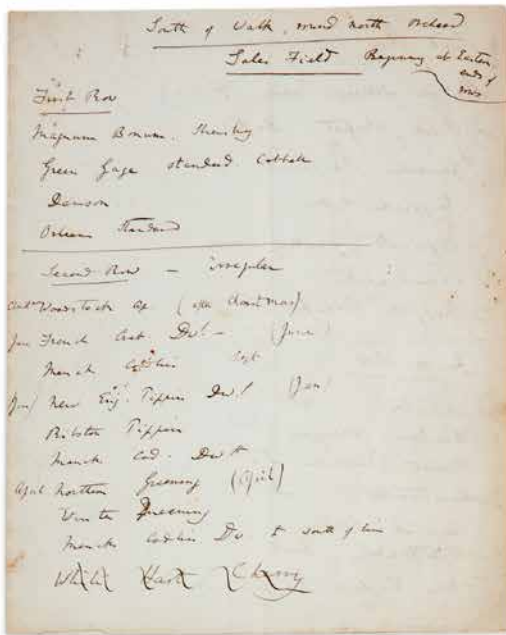 South of Walk, round north Orchard
Sales Field Beginning at Eastern
ends of
rows
First Row
Magnum Bonum.
Green Gage standard
Damson
Orleans Standard
Second Row — irregular
Woodstock (after Christmas)
Jan French Crab. Dwf — (June)
Manck Codlin Sept
Jan/ New Eng. Pippin Dwf (Jan)
Ribston Pippin
Manck Cod. Dwf
April Northern Greening (April)
Winter Queening
Manck Codlin Dwf to south of line
White Heart Cherry